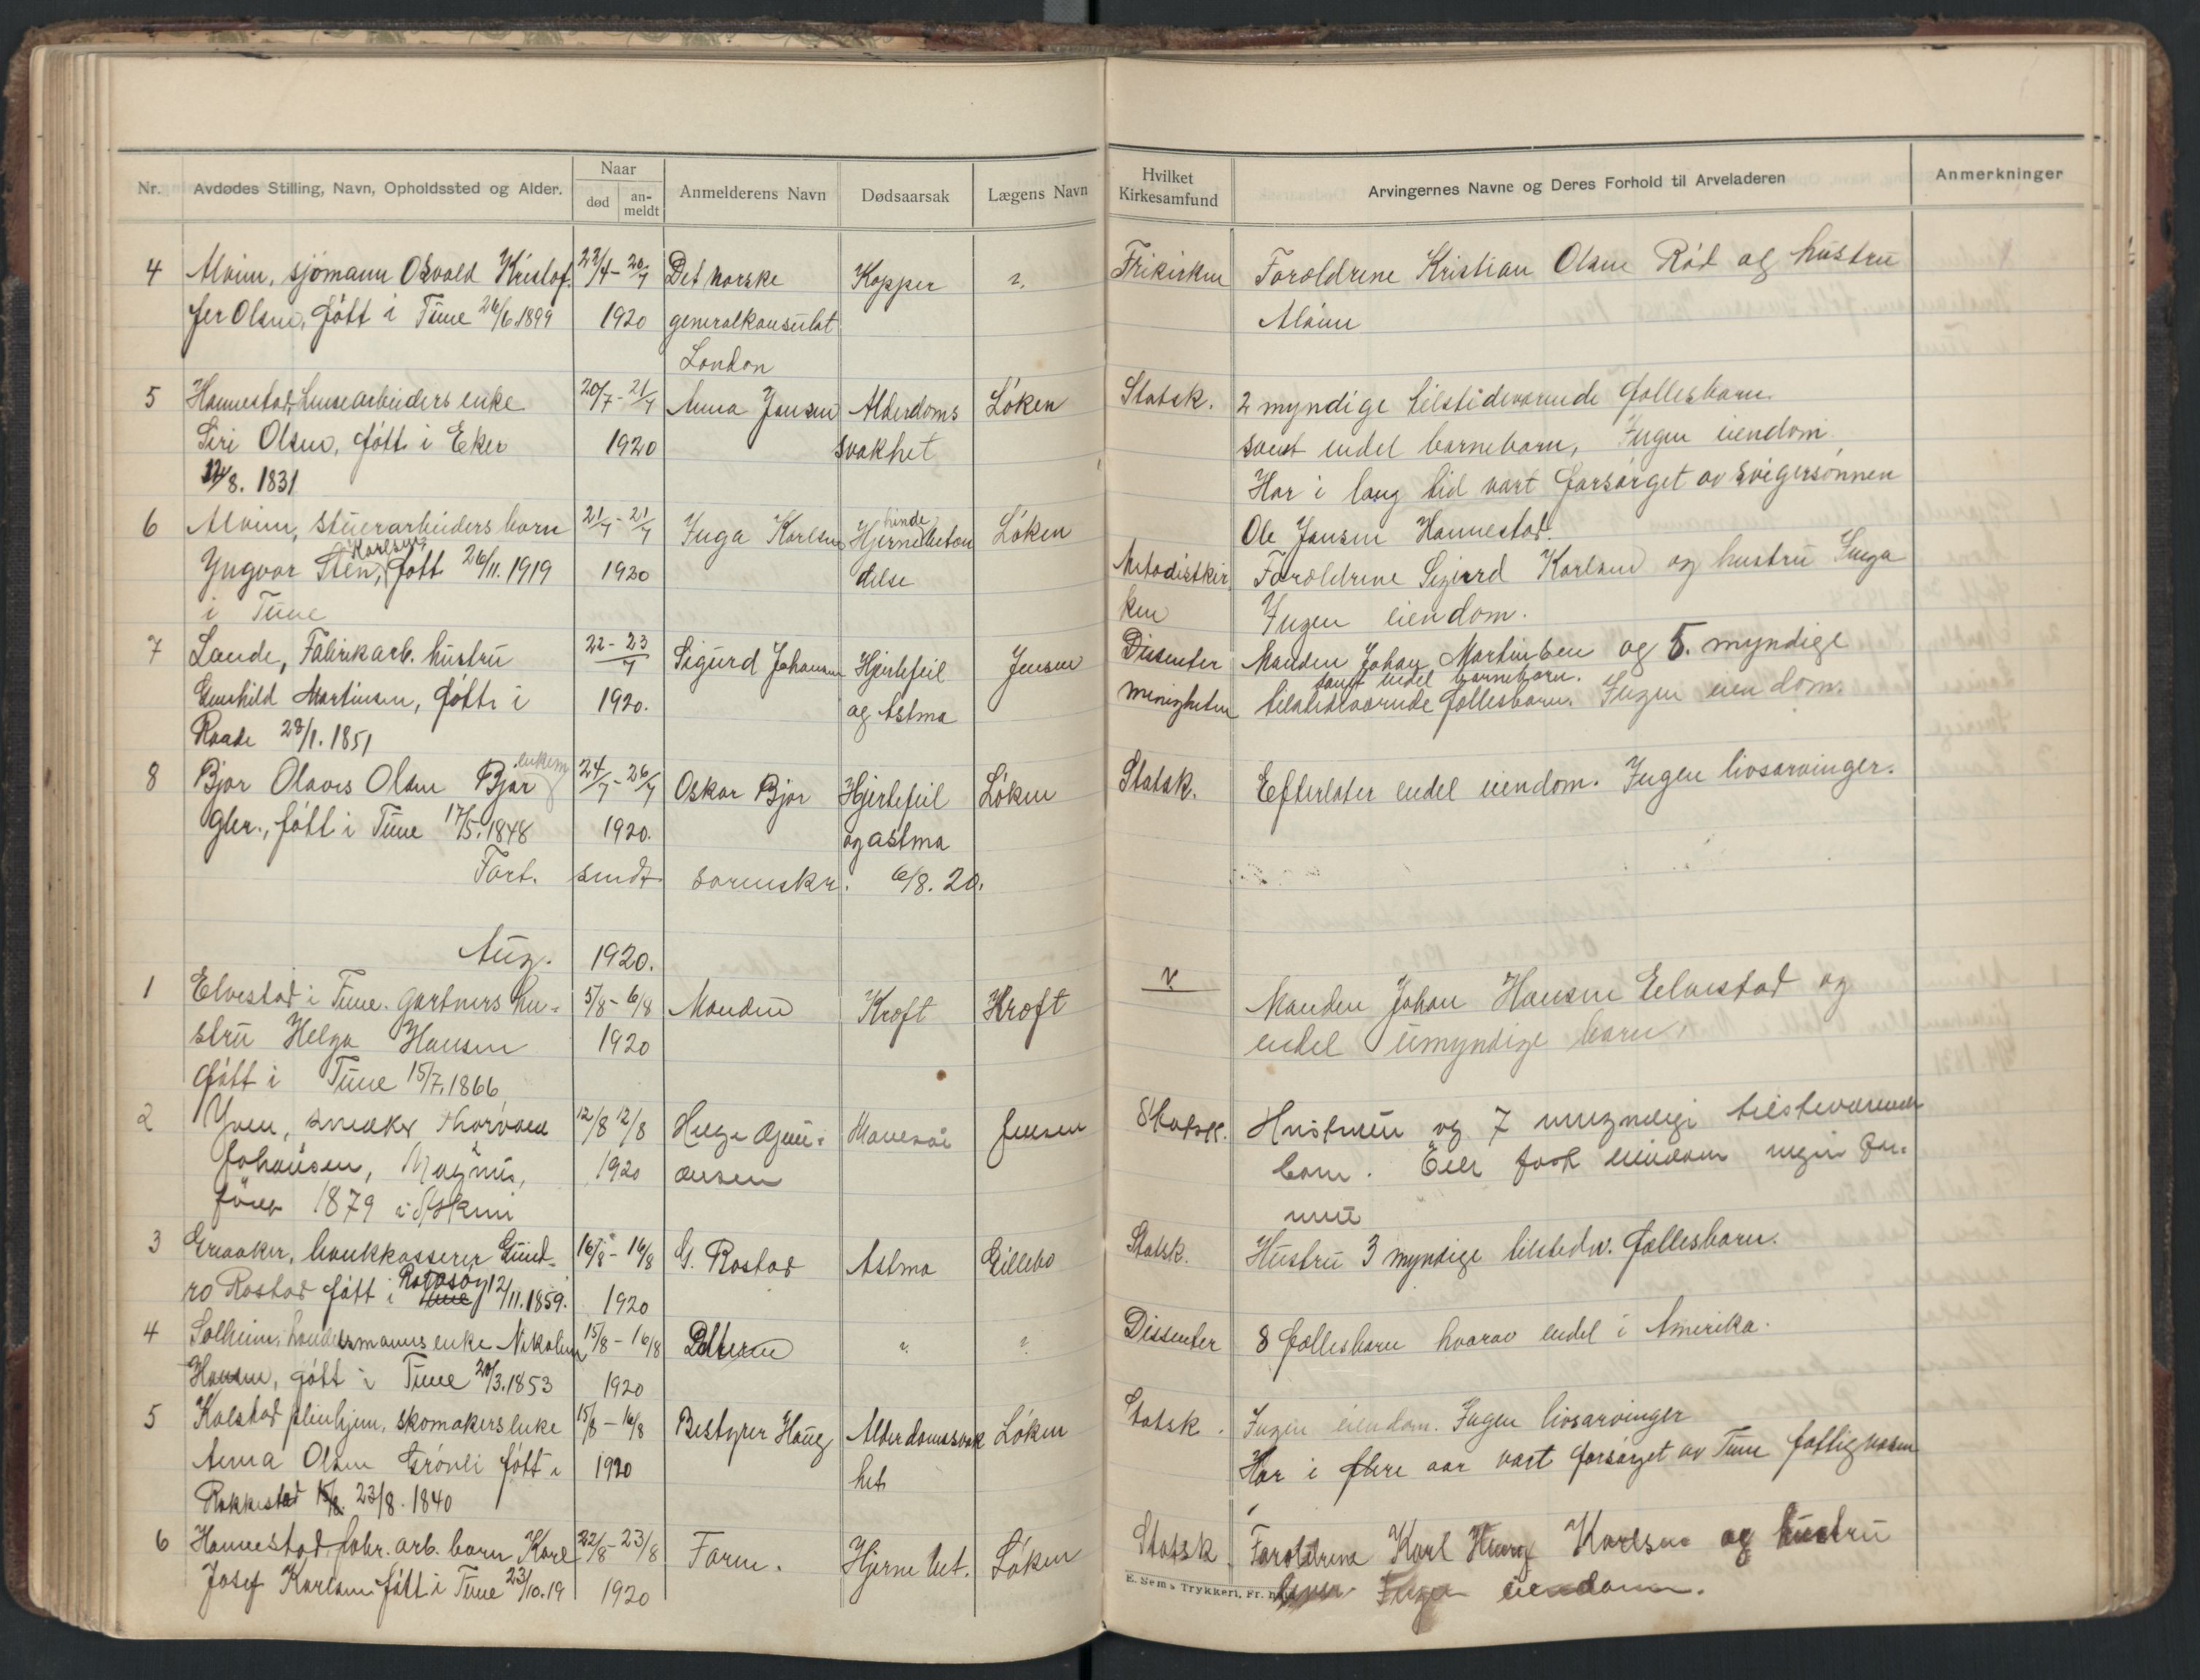 Nr.
Avdødes Stilling, Navn, Opholdssted og Alder.
Naar
død
an-
meldt
Anmelderens Navn
Dødsaarsak
Lægens Navn
Hvilket
Kirkesamfund
Arvingernes Navne og Deres Forhold til Arveladeren
Anmerkninger
4 Alvim, sjømann Osvald Kristof- 22/4 - 20/7 Det norske Kopper ?. Frikirken Forældrene Kristian Olsen Rød og hustru
fer Olsen, født i Tune 26/6 1899 1920 generalkonsulat Alvim
London
5 Hannestad, lensearbeiders enke 20/7 - 21/7 Anna Jansen Alderdoms Løken Statsk. 2 myndige tilstedeværende fællesbarn.
Siri Olsen, født i Eker 1920 svakhet samt endel barnebarn, Ingen eiendom
/8. 1831 Har i lang tid vært forsørget av svigersønnen
Ole Jansen Hannestad.
6 Alvim, stuerarbeiders barn 21/7 - 21/7 Inga Karlsen Hjernehindebeten Løken Metodistkir
Yngvar Sten, Karlsen født 26/11. 1919 1920 delse Forældrene Sigurd Karlsen og hustru Inga
i Tune ken Ingen eiendom.
7 Lande, Fabrikarb. hustru 22 - 23/7 Sigurd Johansen Hjertefeil Jensen Dissenter Manden Johan Martinsen og 5. myndige
samt endel barnebarn.
Gunhild Martinsen, født i 1920. og Astma menigheten tilstedeværende fællesbarn. Ingen eiendom.
Raade 28/1. 1851
8 Bjor Olavis Olsen Bjør enkem 24/7 - 26/7 Oskar Bjør Hjertefeil Løken Statsk. Efterlater endel eiendom. Ingen livsarvinger.
født i Tune 17/5. 1848 1920. og astma
Fort. sendt sorenskr. 6/8. 20.
Aug. 1920.
1 Elvestad i Tune. Gartners hu- 5/8 - 6/8 Manden Kræft Kroft Manden Johan Hansen Elvestad og
stru Helga Hansen 1920 endel umyndige barn.
født i Tune 15/7. 1866
2 Yven, snekker Thorvald 12/8 12/8 Jensen Statsk. Hustruen og 7 umyndige tilstedeværende
Johansen, 1920 barn. fast eiendom
født 1879 i Askim
3 Greaaker, bankkasserer Gund- 16/8 - 16/8 G. Rostad Astma Eillebo Statsk. Hustru 3 myndige tilstedev. fællesbarn.
ro Rostad født i Rolvsøy Tune 12/11. 1859. 1920
4 Solheim, landsmanns enke Nikoline 15/8 - 16/8 ? ? Dissenter 8 fællesbarn hvorav endel i Amerika.
Hansen, født i Tune 20/3. 1853 1920
5 Kalstad pleiehjem, skomakers enke 15/8 - 16/8 Bestyrer Haug Alderdomssvak Løken Statsk. Ingen eiendom. Ingen livsarvinger
Anna Olsen Grønli født i 1920 het Har i flere aar vært forsørget av Tune fattigvæsen
Rakkestad 23/8. 1840
6 Hannestad, fabr. arb. barn Karl 22/8 - 23/8 Farm. Hjerne bet. Løken Statsk. Forældrene Karl Karlsen og hustru
Josef Karlsen født i Tune 23/10. 19 1920 Ingen eiendom.
E. Sem's Trykkeri, Fr. h